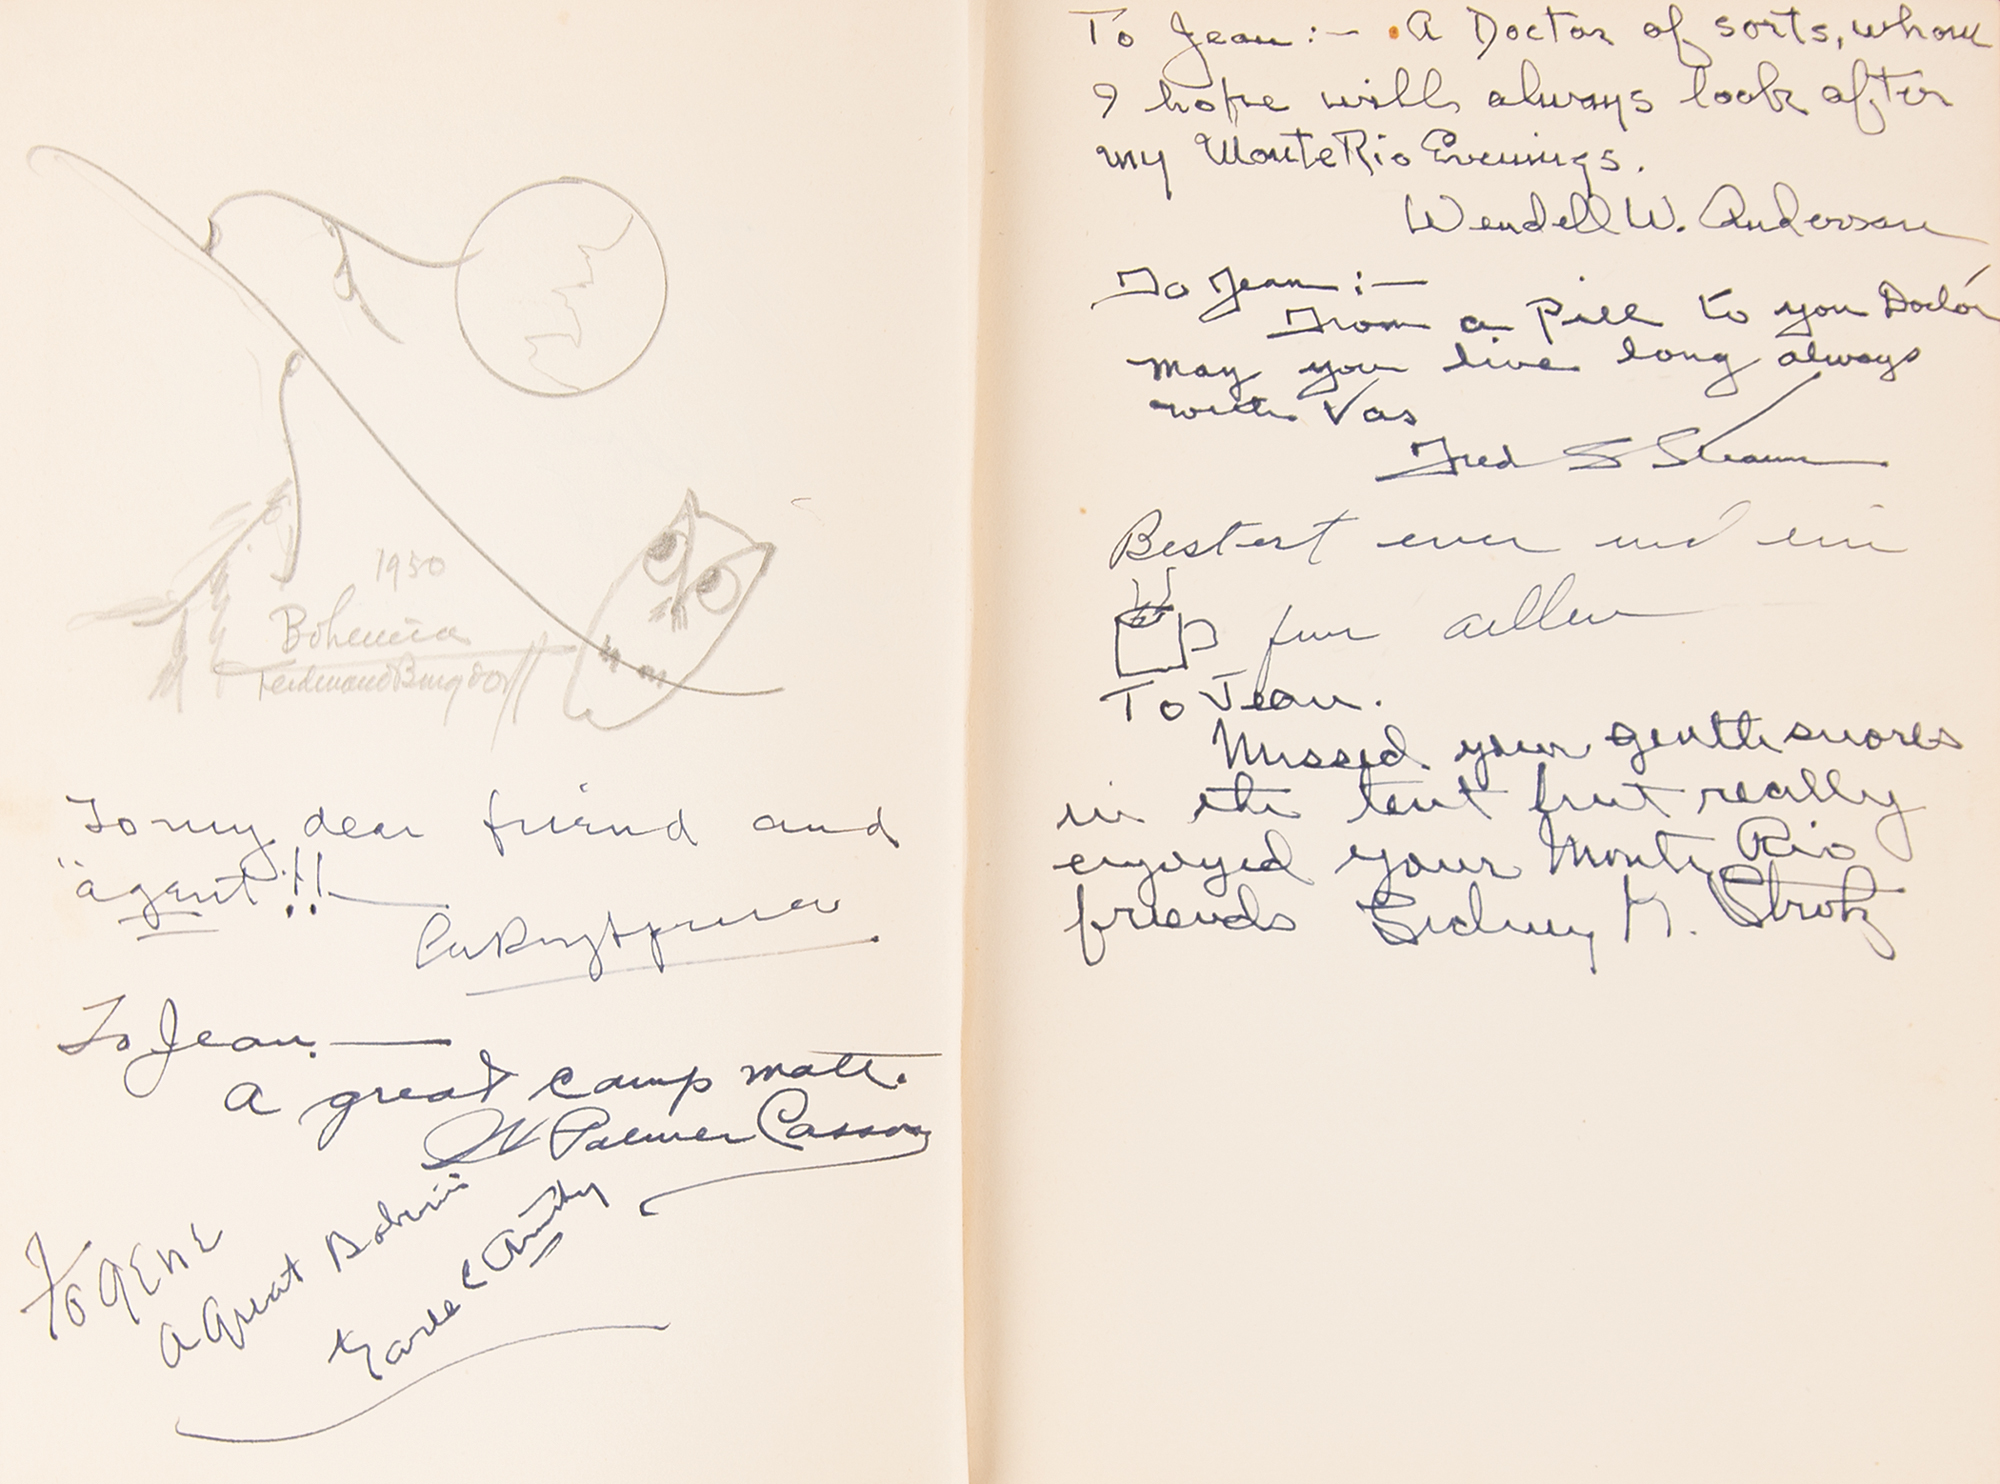 1950
Bohemia
Ferdinand Burgdorff
To my dear friend and
"agent"!!
To Jean.
A great camp mate.
W Palmer Casson
To GENE
A Great Bohemi
Earle C Anthy
To Jean:- A Doctor of sorts, whom
I hope will always look after
my Monte Rio Evenings.
Wendell W. Anderson
To Jean:-
From a pill to you Doctor
may you live long always
with Vas
Fred S
Bestest ever und ein
fur aller
To Jean.
Missed your gentle snores
in the tent but really
enjoyed your Monte Rio
friends Sidney N. Strotz